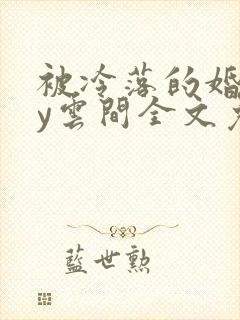 被冷落的婚
y雲間全文
藍世勲